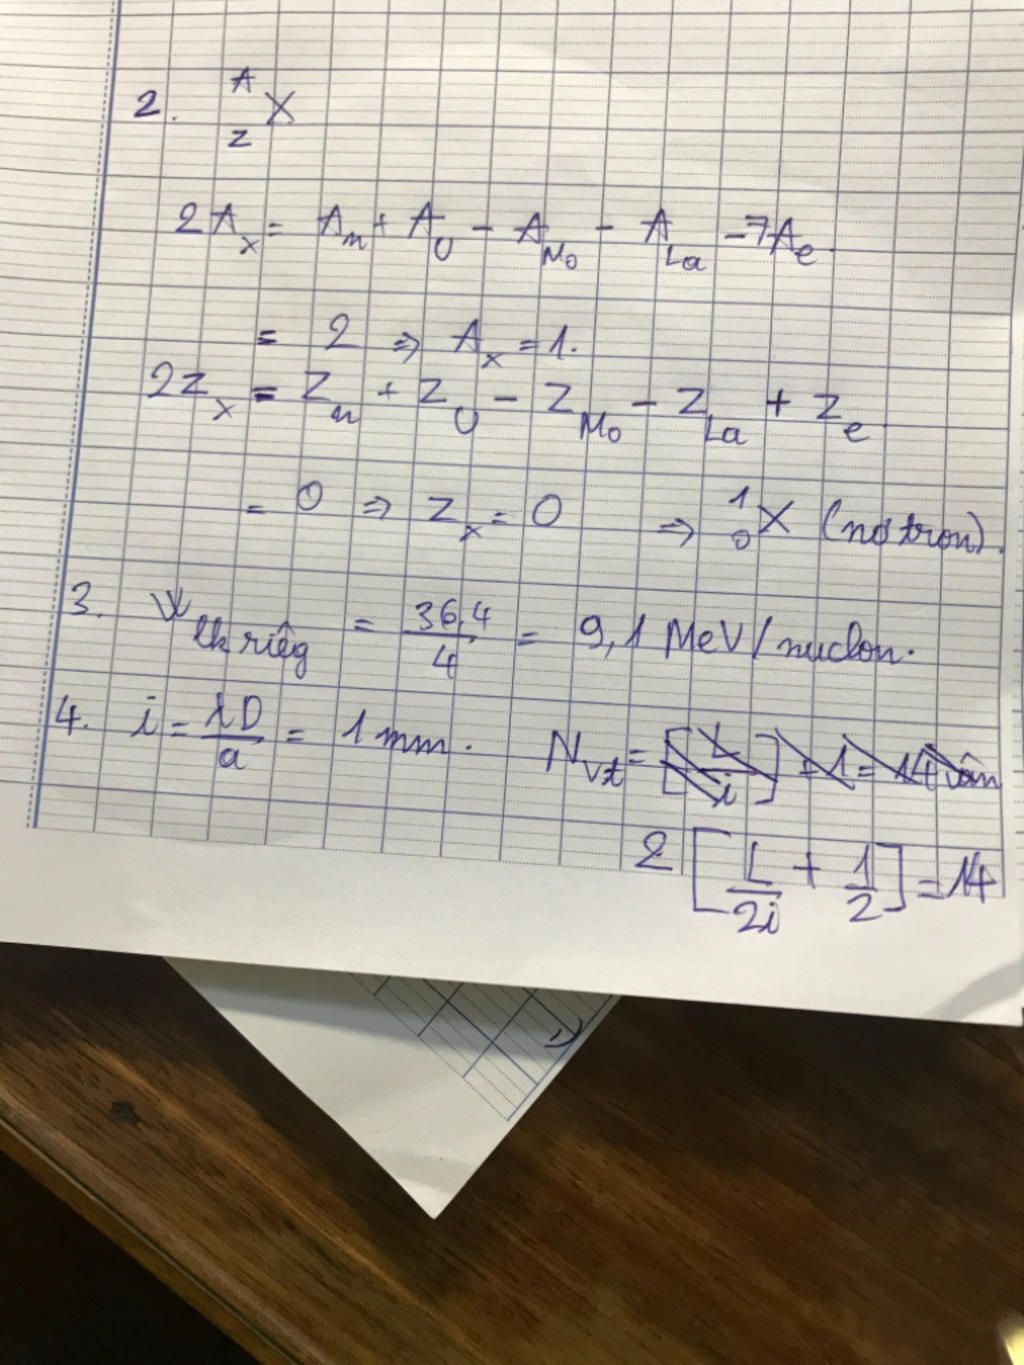 2. ᴬ_Z X
2Aₓ = Aₙ + A_U − A_Mo − A_La − 7Aₑ
= 2 ⇒ Aₓ = 1.
2Zₓ = Zₙ + Z_U − Z_Mo − Z_La + Zₑ
= 0 ⇒ Zₓ = 0 ⇒ ¹₀X (nơtron).
3. W_lk riêg = 36,4/4 = 9,1 MeV/nuclon.
4. i = λD/a = 1 mm. N_vt = [L/i] + 1 = 14 vân
2 [L/2i + 1/2] = 14